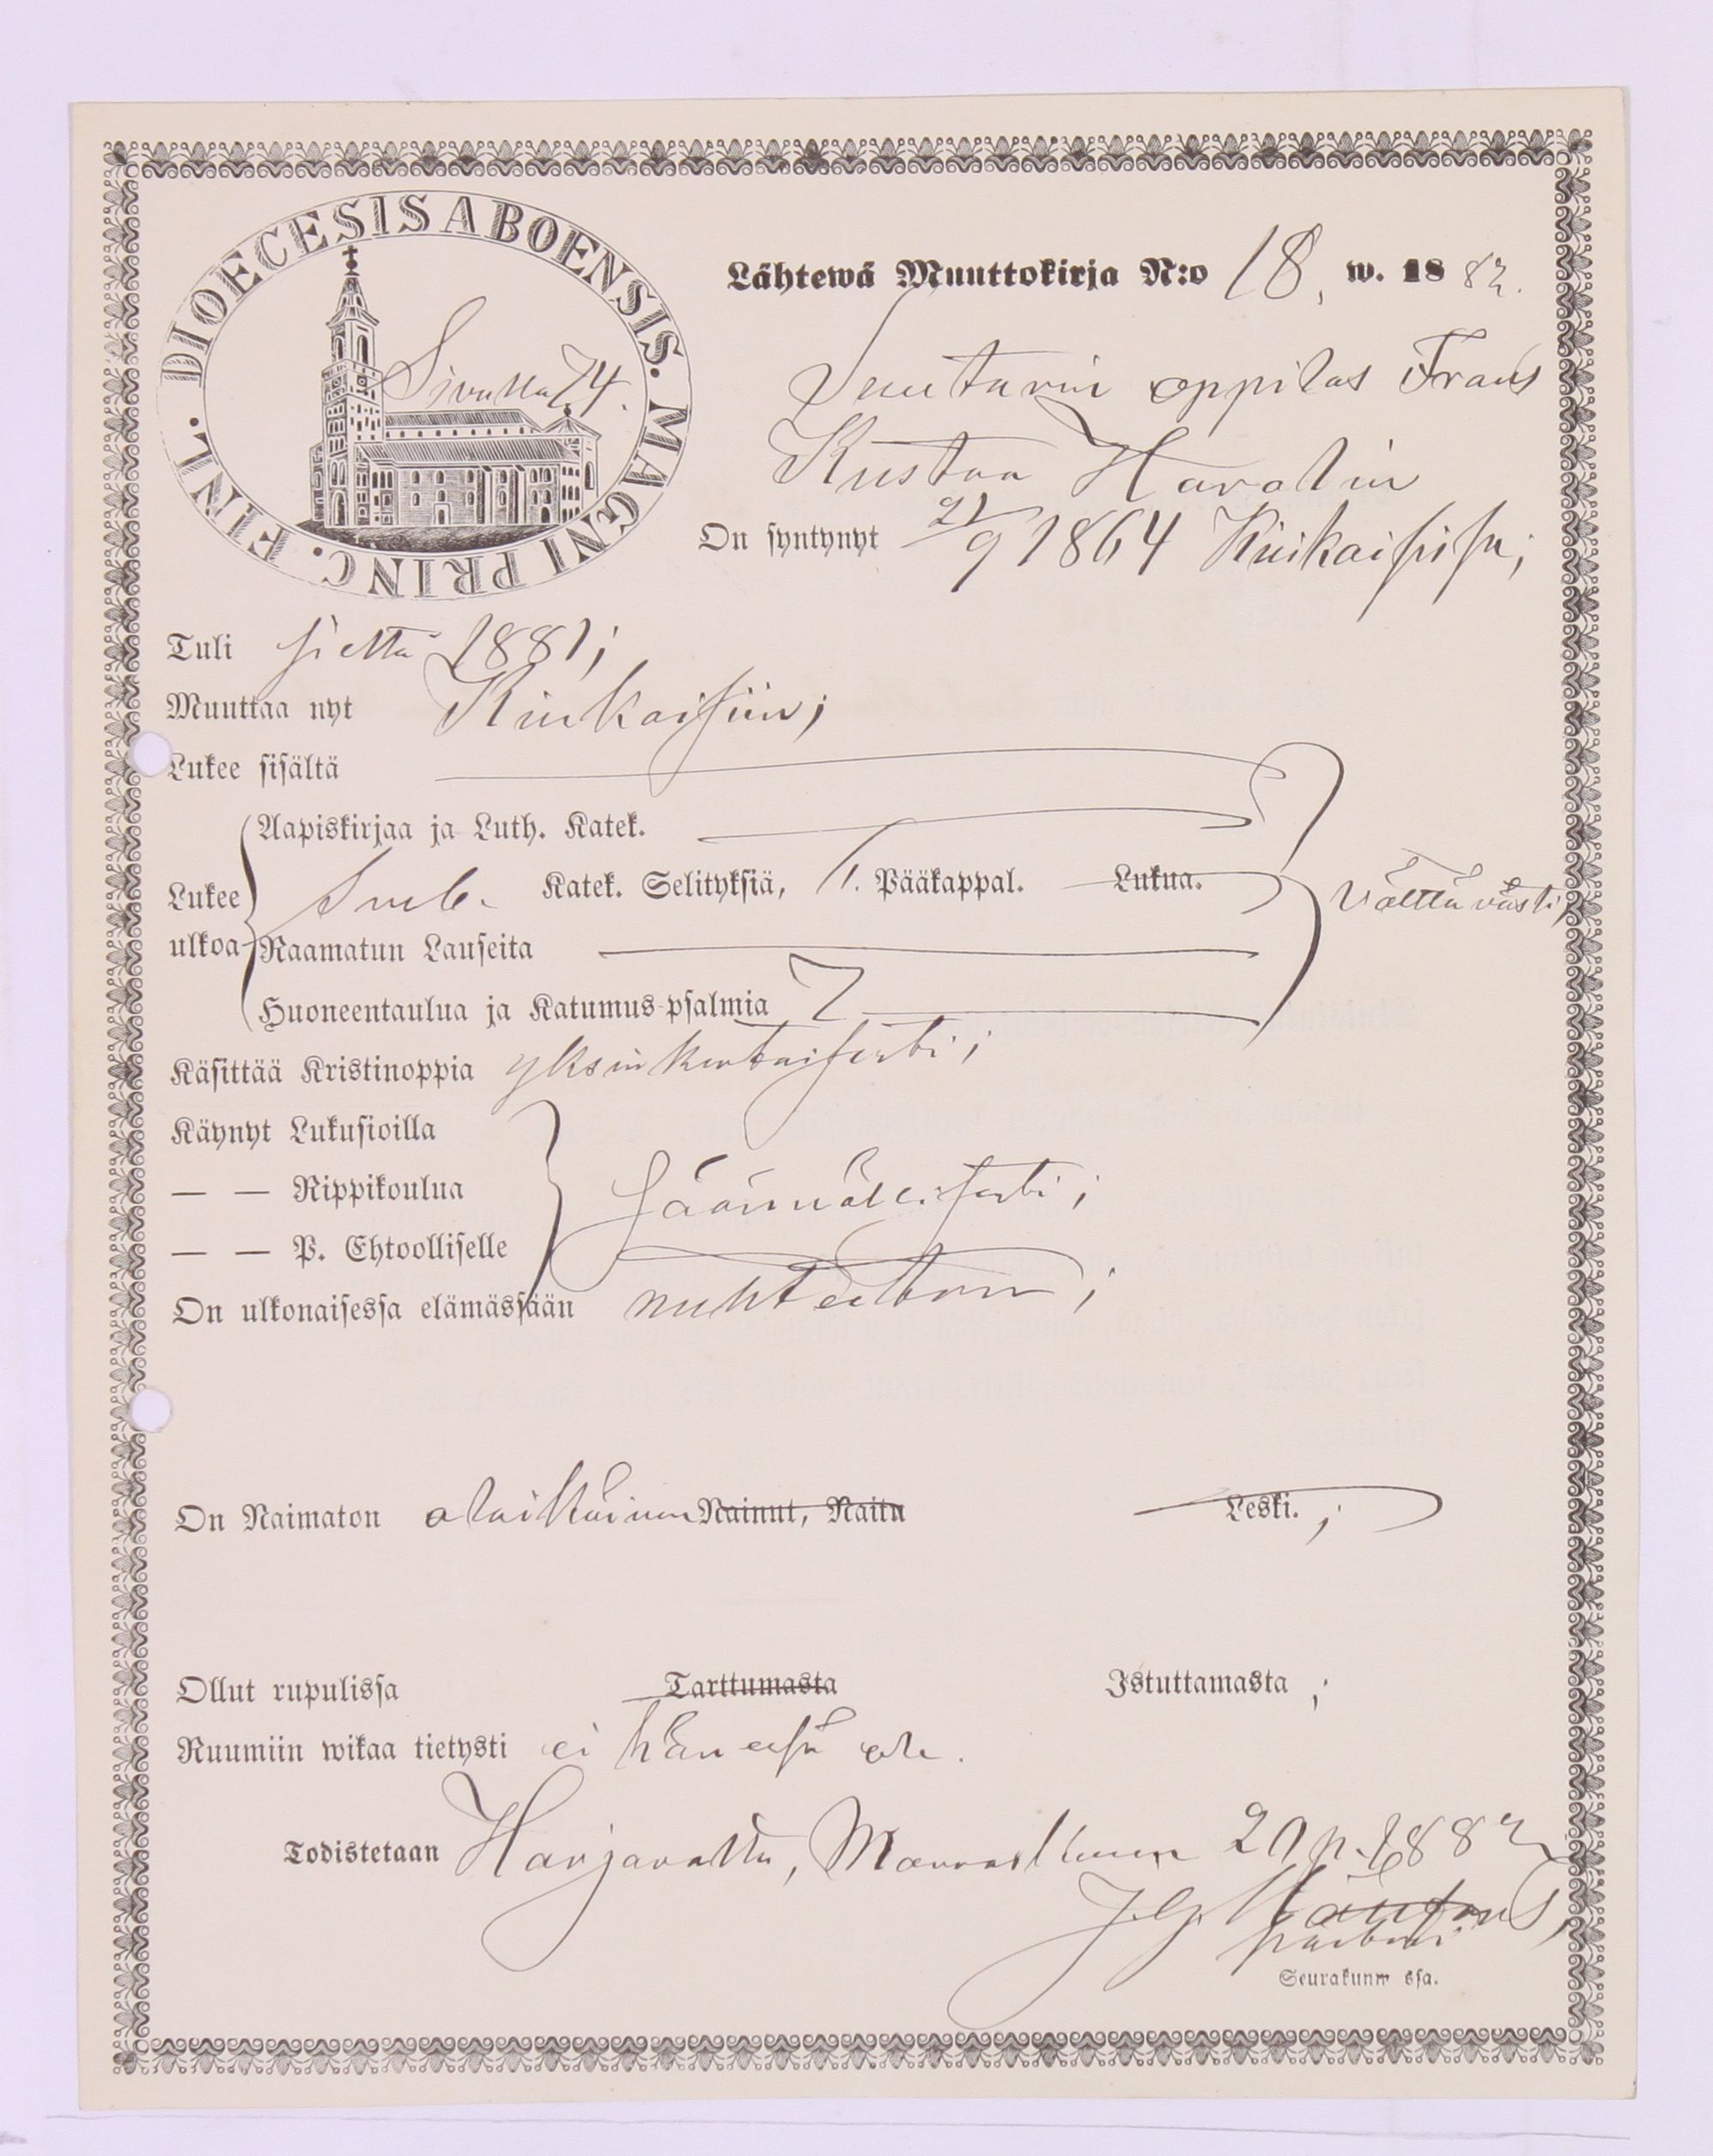 DIOECESIS ABOENSIS. MAGNI PRINC. FINL.
Sivulla 74.
Lähtewä Muuttokirja N:o 18, w. 1882.
Suutarin oppilas Frans
Kustaa Havolin
On syntynyt 21/9 1864 Kiukaisissa;
Tuli sieltä 1881;
Muuttaa nyt Kiukaisiin;
Lukee sisältä
Aapiskirjaa ja Luth. Katek.
Lukee Sveb. Katek. Selityksiä, 1. Pääkappal. Lukua. Välttävästi;
ulkoa Raamatun Lauseita
Huoneentaulua ja Katumus-psalmia 7
Käsittää Kristinoppia yksinkertaisesti;
Käynyt Lukusioilla
— — Rippikoulua säännöllisesti;
— — P. Ehtoolliselle
On ulkonaisessa elämässään nuhteeton;
On Naimaton alaikäinen Nainut, Naitu Leski.;
Ollut rupulissa Tarttumasta Istuttamasta;
Ruumiin wikaa tietysti ei hänessä ole.
Todistetaan Harjavalta, Marraskuun 21 p. 1882
J. G.
pastori
Seurakunnassa.